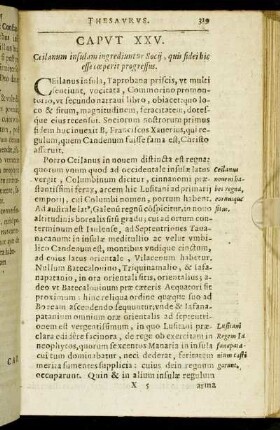 THESAVRVS. 329
CAPVT XXV.
Ceilanum insulam ingrediuntur Socij, quis fidei hic
esse cœperit progressus.
CEilanus insula, Taprobana priscis, vt multi
sentiunt, vocitata, Commorino promon-
torio, vt secundo narraui libro, obiacet: quo lo-
co & situm, magnitudinem, feracitatem, dotes-
que eius recensui. Sociorum nostrorum primus
fidem huc inuexit B. Franciscus Xauerius, qui re-
gulum, quem Candenum fuisse fama est, Christo
asseruit.
Porro Ceilanus in nouem distincta est regna:
quorum vnum quod ad occidentale insulæ latus
vergit, Columbinum dicitur, cinnamomi præ-
stantissimi ferax, arcem hic Lusitani ad primarij
emporij, cui Columbi nomen, portum habent.
Ad australe latus, Galenū regnū cōspicitur, in nouo
altitudinis borealis fisti gradu; cui ad ortum con-
terminum est Iaulense, ad Septentriones Tana-
uacanum: in insulæ meditullio ac velut vmbi-
lico Candenum est, montibus vndique cinctum,
ad cuius latus orientale, Vilacenum habetur.
Nullum Batecalorino, Triquinamalto, & Iafa-
napatanio, in ora orientali sitis, orientalius, a-
deo vt Batecalouinum præ cæteris Aequatori sit
proximum: hinc reliqua ordine quæque suo ad
Boream ascendendo sequuntur, vnde & Iafana-
patanium omnium oræ orientalis ad septentri-
onem est vergentissimum, in quo Lusitani præ-
clara edidere facinora, de rege ob exercitam in
neophytos, quorum sexcentos Manaria in insula
cui tum dominabatur, neci dederat, feritatem
merita sumentes supplicia: cuius dein regnum
occuparunt. Quin & in alium insulæ regulum
X 5 arma
Ceilanus
nouem ha-
bet regna,
eorumque
situs.
Lusitani
Regem Ia
fanapata-
nium casti
garunt.